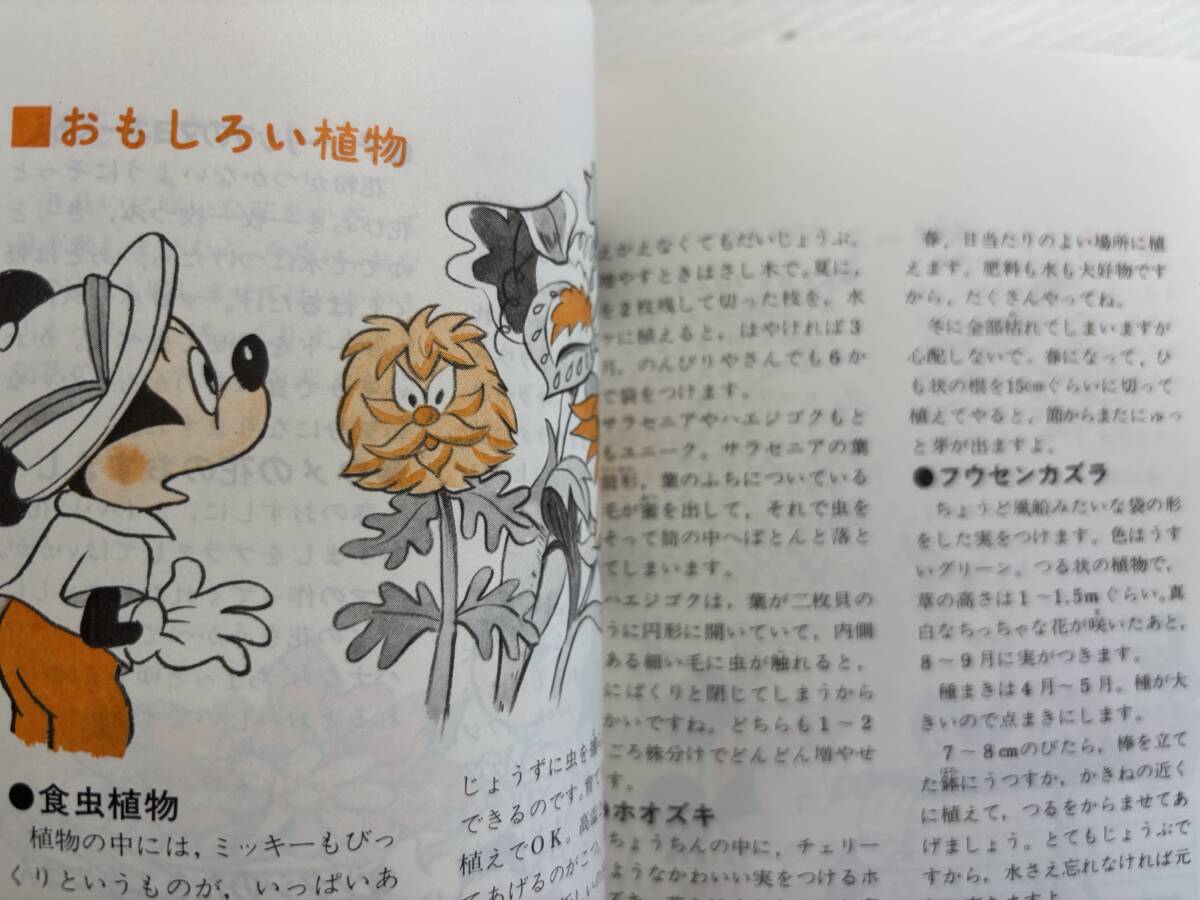 ■おもしろい植物
●食虫植物
植物の中には，ミッキーもびっ
くりというものが，いっぱいあ
じょうずに虫を捕
できるのです。育て
植えでOK。高温
てあげるのがこつ。
えかえなくてもだいじょうぶ。
増やすときはさし木で。夏に，
を2枚残して切った枝を，水
に植えると，はやければ3
月，のんびりやさんでも6か
で袋をつけます。
サラセニアやハエジゴクもと
もユニーク。サラセニアの葉
筒形，葉のふちについている
毛が蜜を出して，それで虫を
そって筒の中へぽとんと落と
てしまいます。
ハエジゴクは，葉が二枚貝の
うに円形に開いていて，内側
ある細い毛に虫が触れると，
にぱくりと閉じてしまうから
かいですね。どちらも1～2
ごろ株分けでどんどん増やせ
す。
●ホオズキ
ちょうちんの中に，チェリー
ようなかわいい実をつけるホ
春，日当たりのよい場所に植
えます。肥料も水も大好物です
から，たくさんやってね。
冬に全部枯れてしまいますが
心配しないで。春になって，ひ
も状の根を15cmぐらいに切って
植えてやると，節からまたにゅっ
と芽が出ますよ。
●フウセンカズラ
ちょうど風船みたいな袋の形
をした実をつけます。色はうす
いグリーン。つる状の植物で，
草の高さは1～1.5mぐらい。真
白なちっちゃな花が咲いたあと，
8～9月に実がつきます。
種まきは4月～5月。種が大
きいので点まきにします。
7～8cmのびたら，棒を立て
た鉢にうつすか，かきねの近く
に植えて，つるをからませてあ
げましょう。とてもじょうぶで
すから，水さえ忘れなければ元